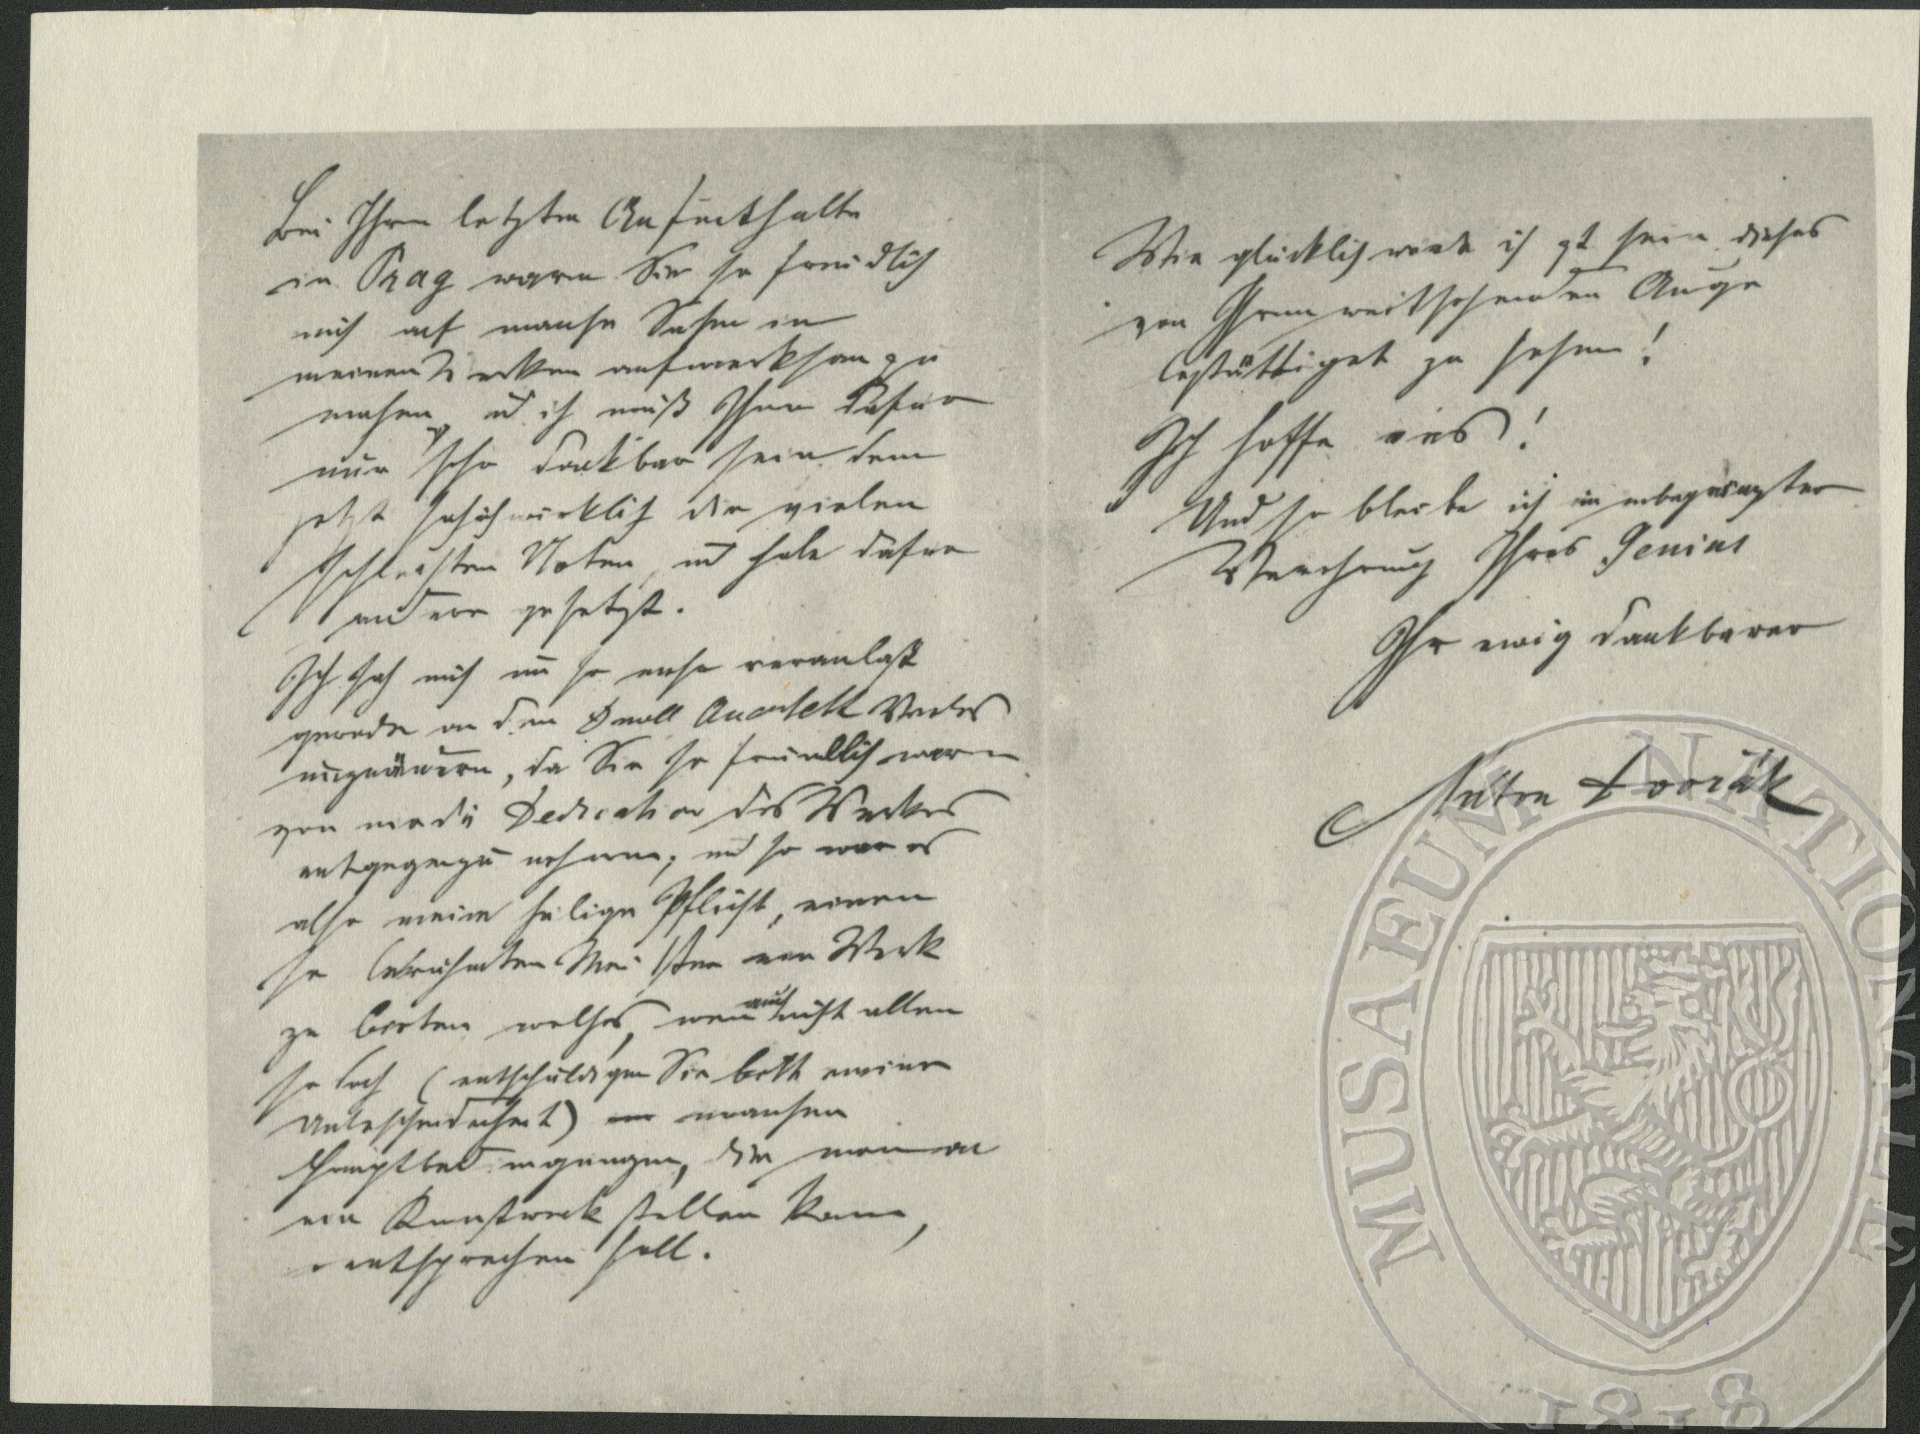 Bei Ihren letzten Aufenthalte
in Prag waren Sie so freundlich
mich auf manche Sachen in
meinen Werken aufmerksam zu
machen, und ich muß Ihnen dafür
nur sehr dankbar sein denn
jetzt sah ich wirklich die vielen
schlechten Noten, und habe dafür
andere gesetzt.
Ich sah mich um so mehr veranlaßt
gerade an dem D moll Quartett Vieles
zu ändern, da Sie so freundlich waren
von mir die Dedication des Werkes
entgegenzunehmen, und so war es
also meine heilige Pflicht, einen
so berühmten Meister ein Werk
zu bieten welches, wenn auch nicht allen
so doch (entschuldigen Sie bitte meine
Unbescheidenheit) manchen
Hauptbedingungen, die man an
ein Kunstwerk stellen kann,
entsprechen soll.
Wie glücklich werde ich sein dieses
von Ihrem weitsehenden Auge
bestättiget zu sehen!
Ich hoffe es!
Und so bleibe ich in unbegränzter
Verehrung Ihres Genius
Ihr ewig dankbarer
Anton Dvořák
MUSAEUM NATIONALE
1818